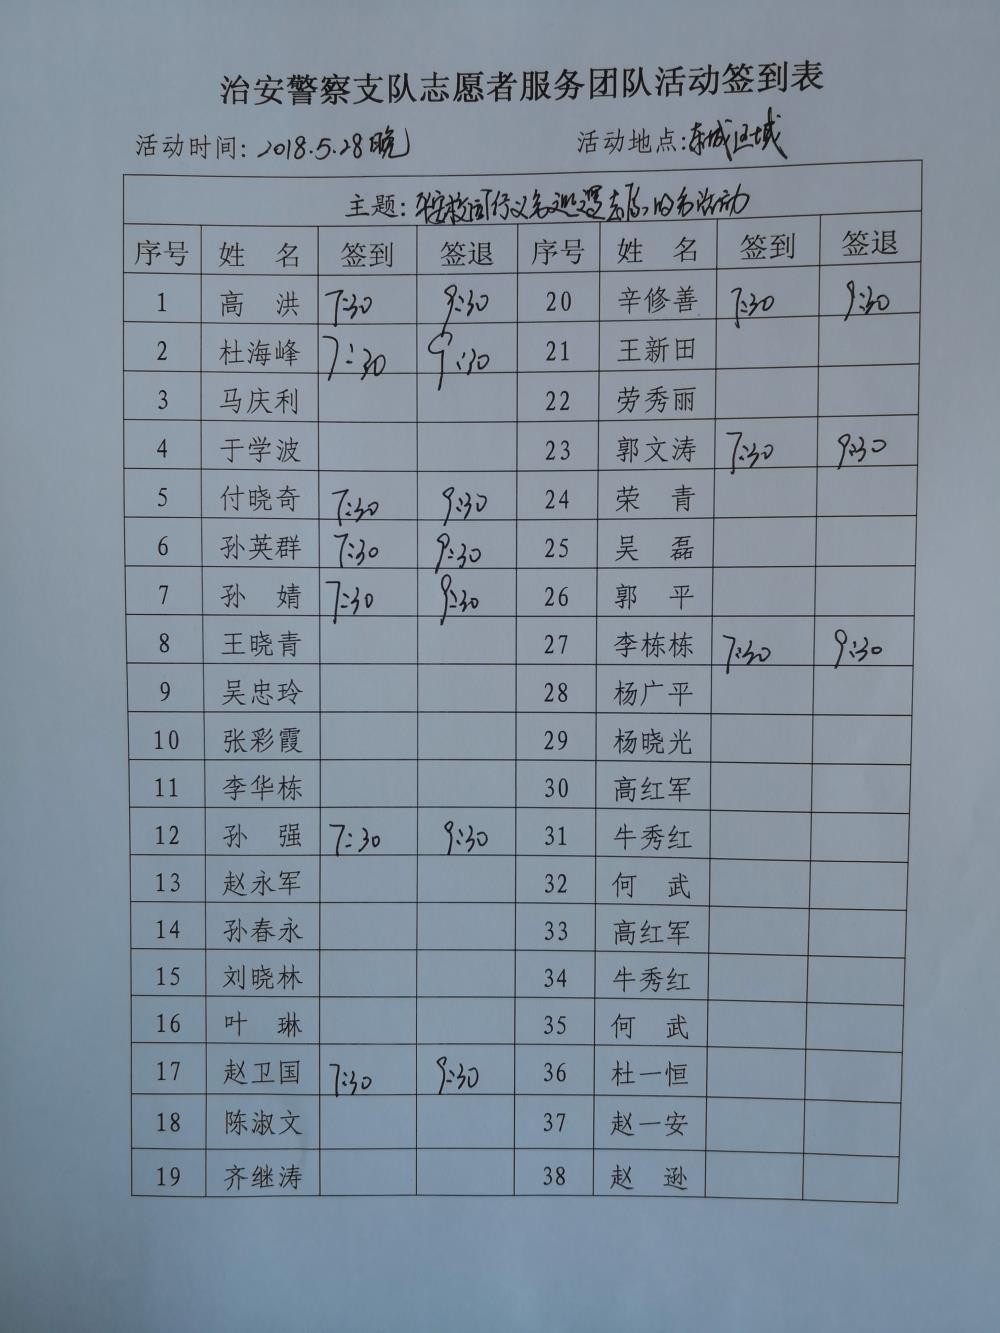 治安警察支队志愿者服务团队活动签到表
活动时间: 2018.5.28晚 活动地点:东城区域
主题: 平安校园行义务巡逻志愿服务活动
序号 姓 名 签到 签退 序号 姓 名 签到 签退
1 高 洪 7:30 9:30 20 辛修善 7:30 9:30
2 杜海峰 7:30 9:30 21 王新田
3 马庆利 22 劳秀丽
4 于学波 23 郭文涛 7:30 9:30
5 付晓奇 7:30 9:30 24 荣 青
6 孙英群 7:30 9:30 25 吴 磊
7 孙 婧 7:30 9:30 26 郭 平
8 王晓青 27 李栋栋 7:30 9:30
9 吴忠玲 28 杨广平
10 张彩霞 29 杨晓光
11 李华栋 30 高红军
12 孙 强 7:30 9:30 31 牛秀红
13 赵永军 32 何 武
14 孙春永 33 高红军
15 刘晓林 34 牛秀红
16 叶 琳 35 何 武
17 赵卫国 7:30 9:30 36 杜一恒
18 陈淑文 37 赵一安
19 齐继涛 38 赵 逊